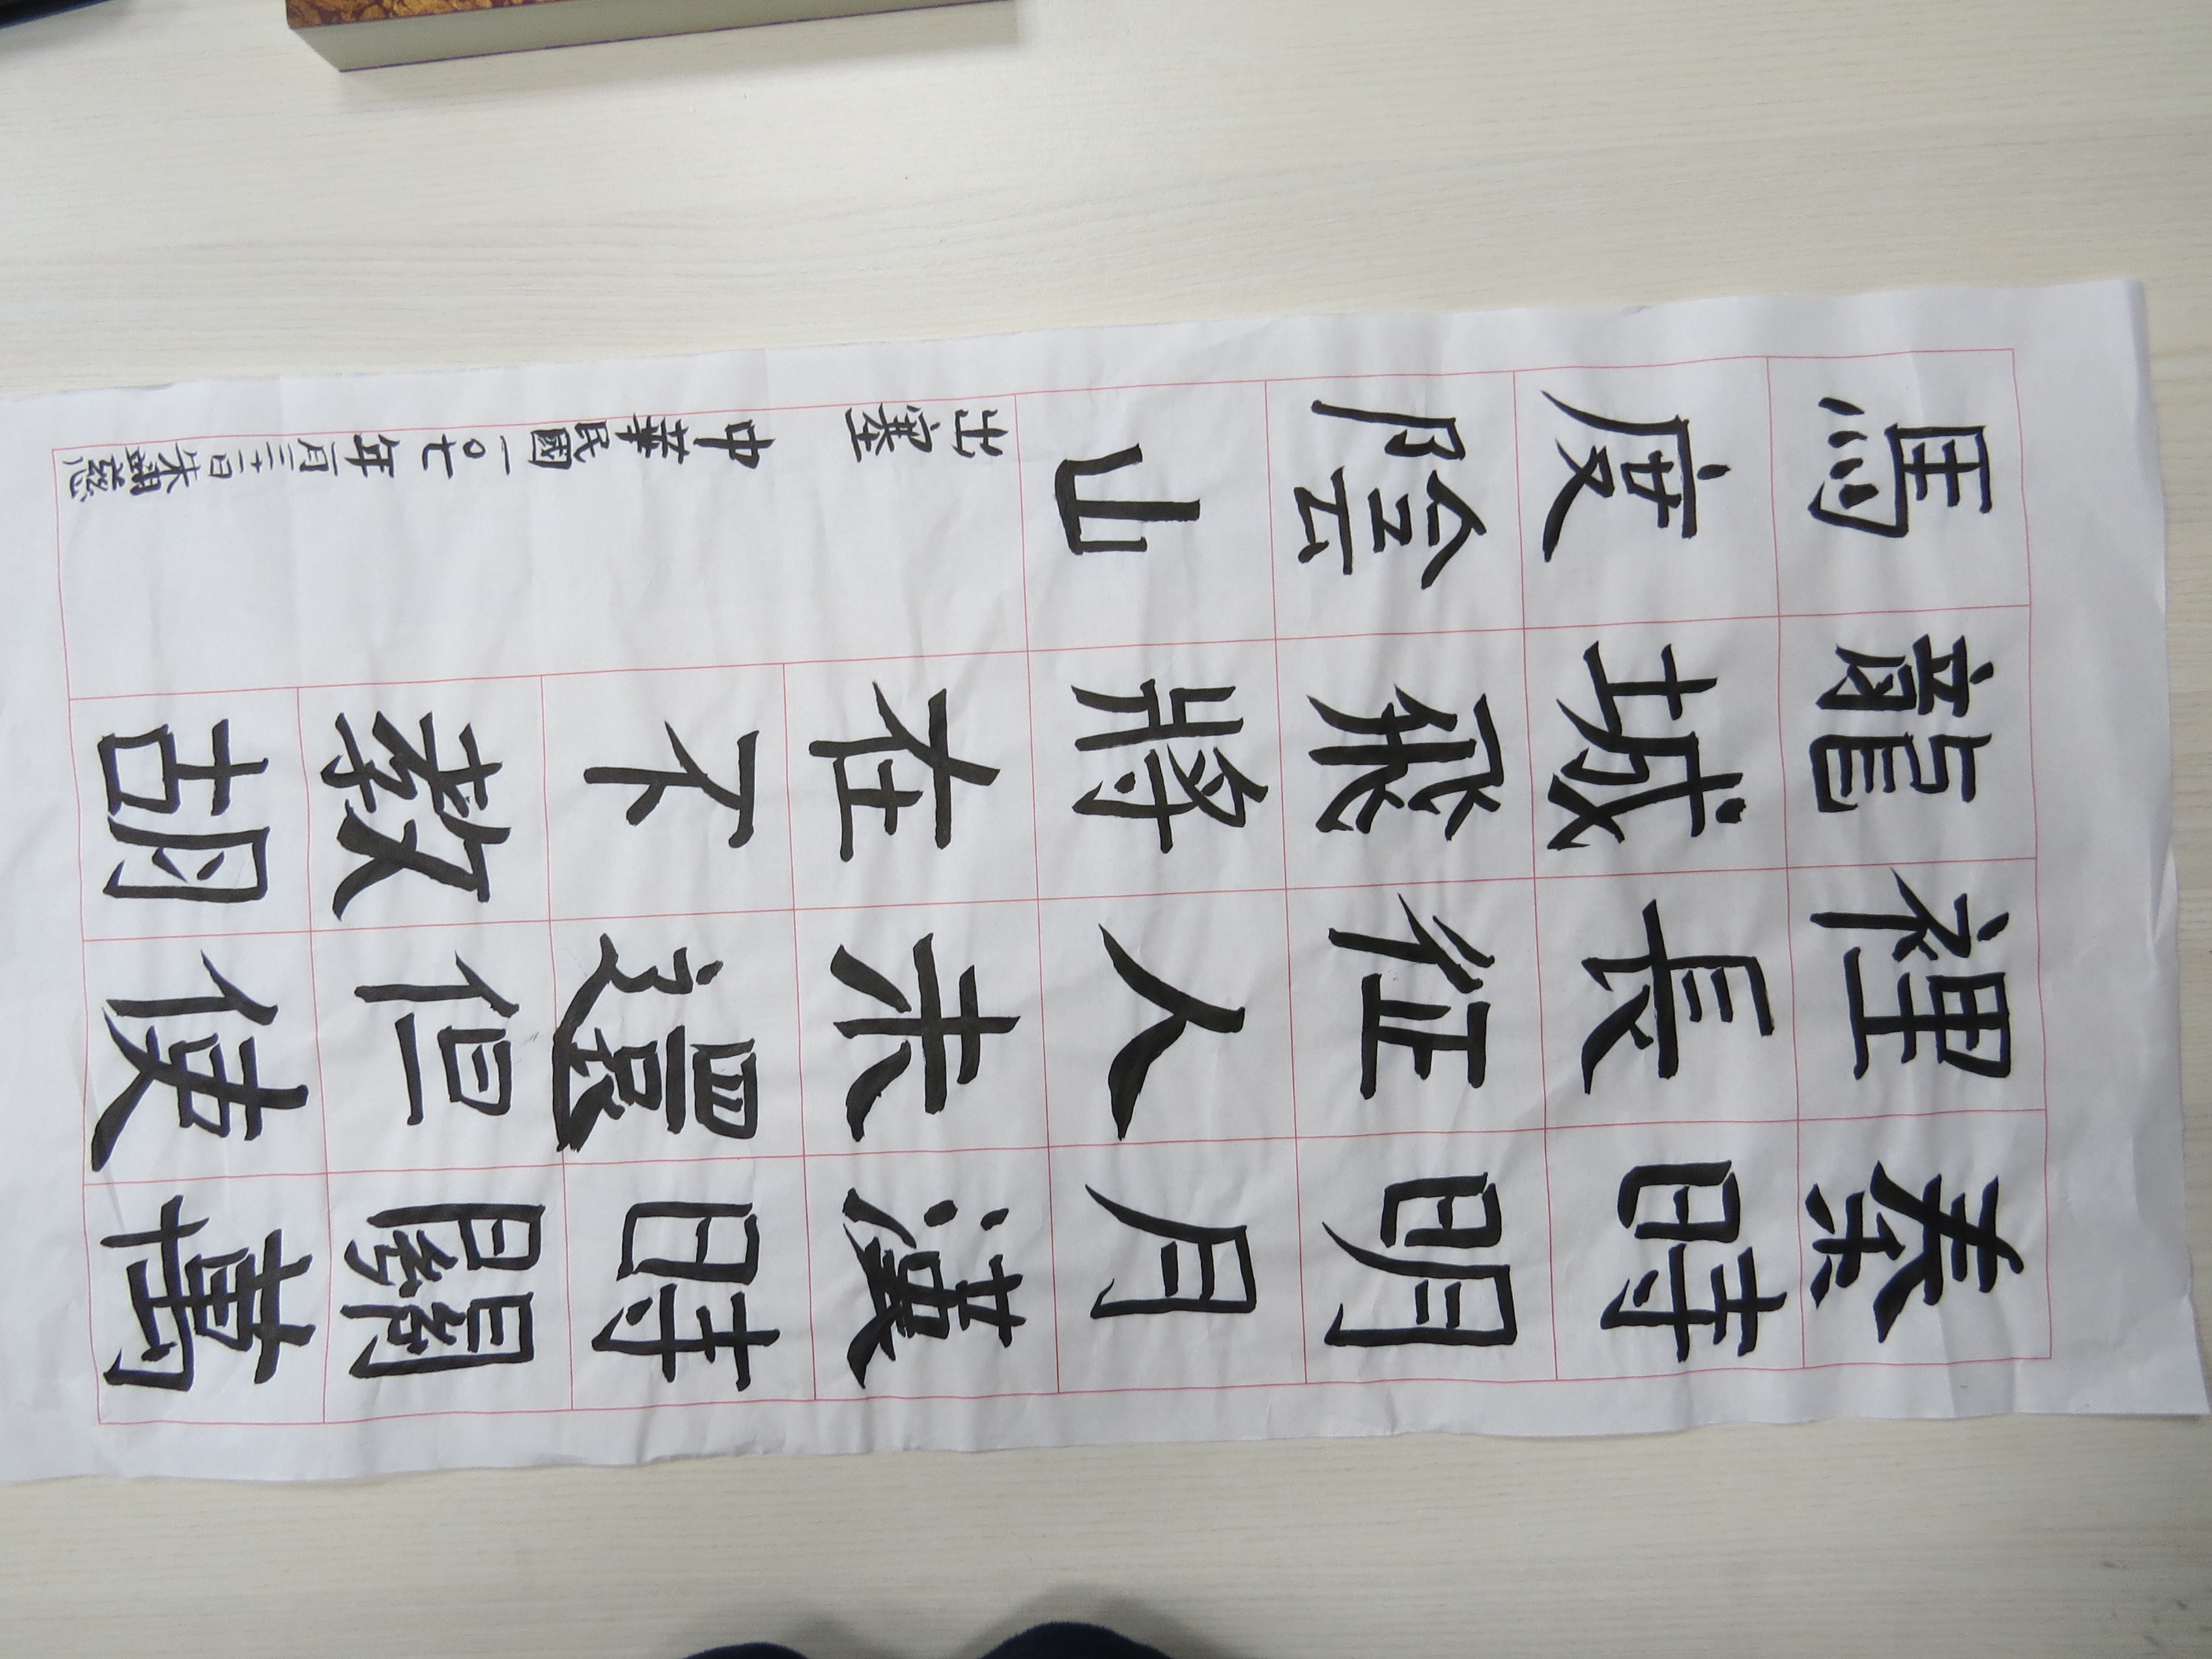 秦時明月漢時關萬
裡長征人未還但使
龍城飛將在不教胡
馬度陰山
出塞 中華民國一〇七年一月三十一日朱